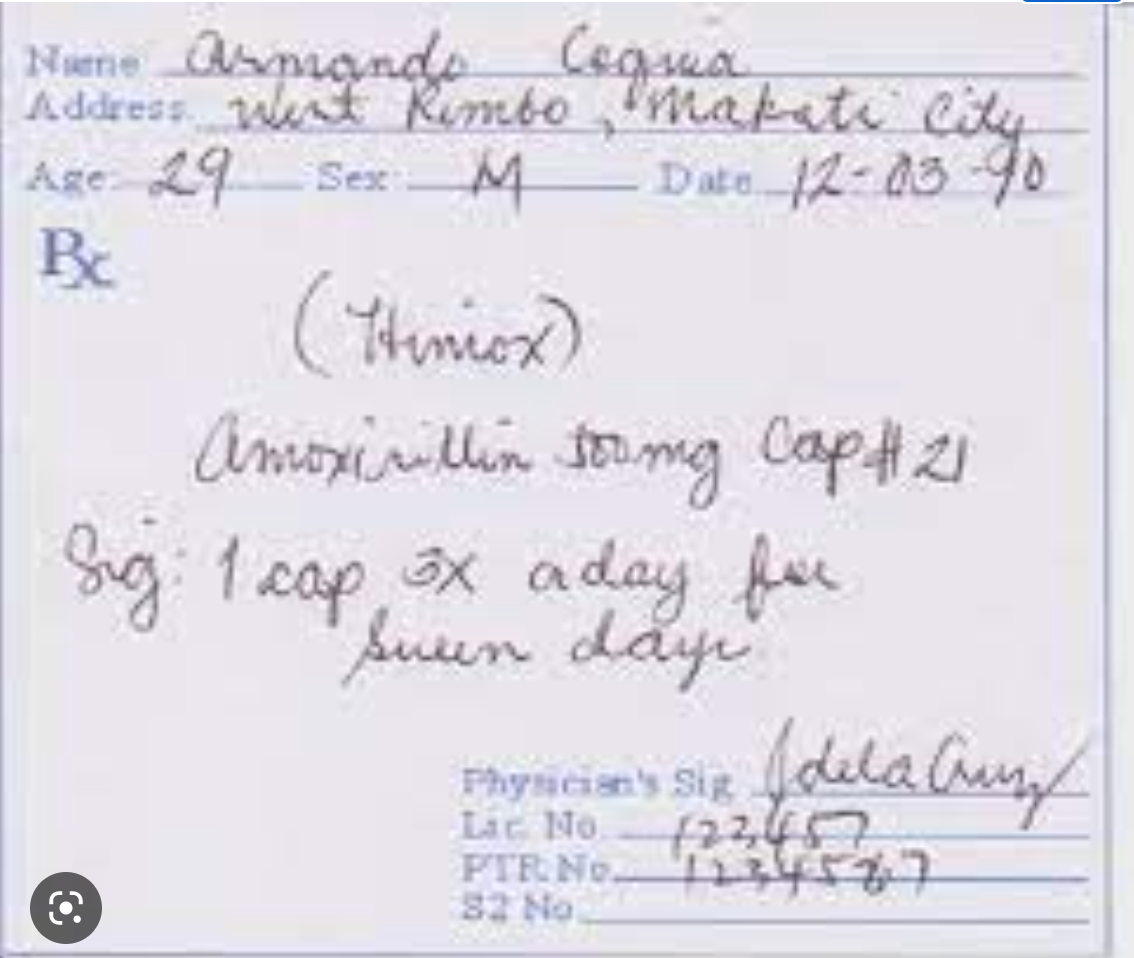 Name Armando
Address West Rembo, Makati City
Age 29 Sex M Date 12-03-90
Rx
(Himox)
Amoxicillin 500mg Cap # 21
Sig: 1 cap 3x a day for
seven days
Physician's Sig Jdela Cruz
Lic. No. 123457
PTR No.
S2 No.